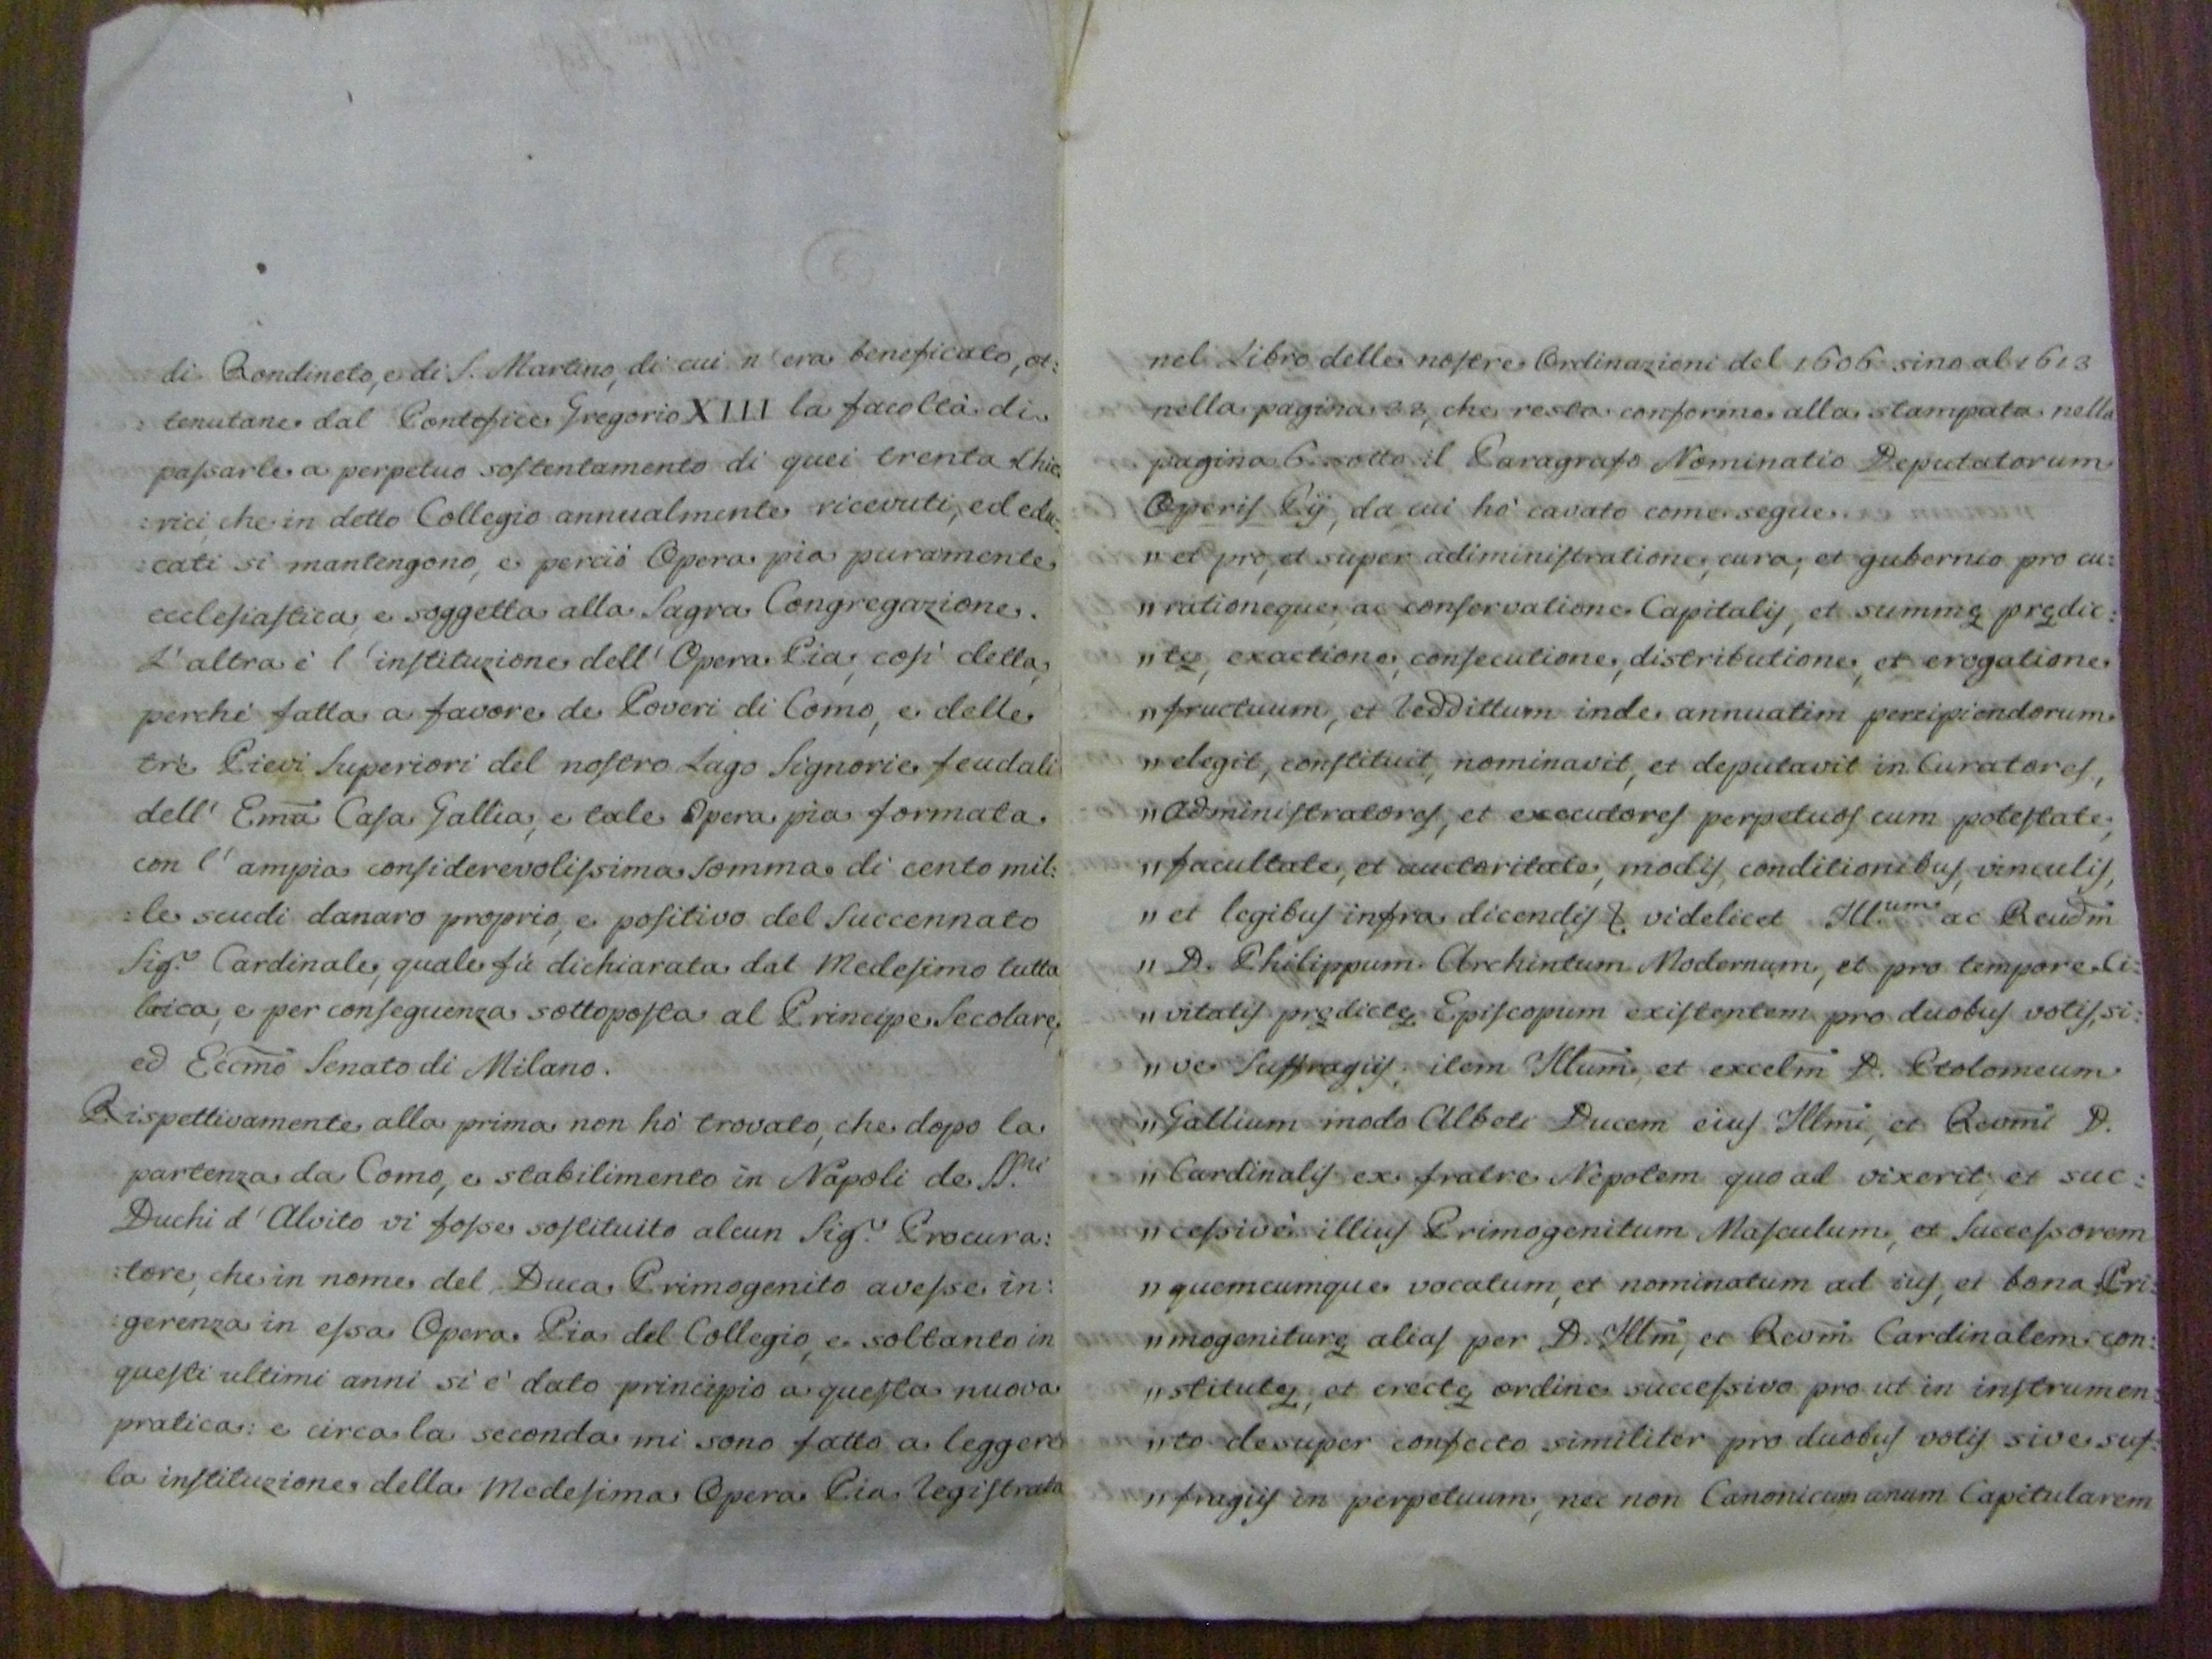 di Rondineto, e di S. Martino, di cui n'era beneficato, ot:
:tenutane dal Pontefice Gregorio XIII la facoltà di
passarle a perpetuo sostentamento di quei trenta Chie
:rici, che in detto Collegio annualmente ricevuti, ed edu:
:cati si mantengono, e perciò Opera pia puramente
ecclesiastica, e soggetta alla Sagra Congregazione.
L'altra è l'instituzione dell'Opera Pia, così detta,
perché fatta a favore de Poveri di Como, e delle
tre Pievi Superiori del nostro Lago Signorie feudali
dell' Em̃a Casa Gallia, e tale Opera pia formata
con l'ampia considerevolissima somma di cento mil:
:le scudi danaro proprio, e positivo del Succennato
Sig.r Cardinale, quale fù dichiarata dal Medesimo tutta
laica, e per conseguenza sottoposta al Principe Secolare,
ed Eccm̃o Senato di Milano.
Rispettivamente alla prima non hò trovato, che dopo la
partenza da Como, e stabilimento in Napoli de SS.ri
Duchi d'Alvito vi fosse sostituito alcun Sig.r Procura:
:tore, che in nome del Duca Primogenito avesse in:
:gerenza in essa Opera Pia del Collegio, e soltanto in
questi ultimi anni si è dato principio a questa nuova
pratica: e circa la seconda mi sono fatto a leggere
la instituzione della Medesima Opera Pia registrata
nel Libro delle nostre Ordinazioni del 1606 sino al 1613
nella pagina 22, che resta conforme alla stampata nella
pagina 6. sotto il Paragrafo Nominatio Deputatorum
Operis Pij, da cui hò cavato come segue.
" et pro, et super adiministratione, cura, et gubernio pro cu:
" rationeque, ac conservatione Capitalis, et summę prędic:
" tę, exactione, consecutione, distributione, et erogatione
" fructuum, et reddittum inde annuatim percipiendorum
" elegit, constituit, nominavit, et deputavit in Curatores,
" Administratores, et executores perpetuos cum potestate,
" facultate, et auctoritate, modis, conditionibus, vinculis,
" et legibus infra dicendis videlicet Ill.um ac Reudm̃
" D. Philippum Archintum Modernum, et pro tempore Ci:
" vitatis prędictę Episcopum existentem pro duobus votis, si:
" ve Suffragijs, item Illum̃, et excelm̃ D. Ptolomeum
" Gallium modo Albeti Ducem eius Illmi, et Revmi D.
" Cardinalis ex fratre Nepotem quo ad vixerit, et suc:
" cessivè illius Primogenitum Masculum, et Successorem
" quemcumque vocatum, et nominatum ad ius, et bona Pri:
" mogeniturę alias per D. Illm̃, et Revm̃ Cardinalem con:
" stitutę, et erectę ordine successivo pro ut in instrumen:
" to desuper confecto similiter pro duobus votis sive suf:
" fragijs in perpetuum, nec non Canonicum unum Capitularem